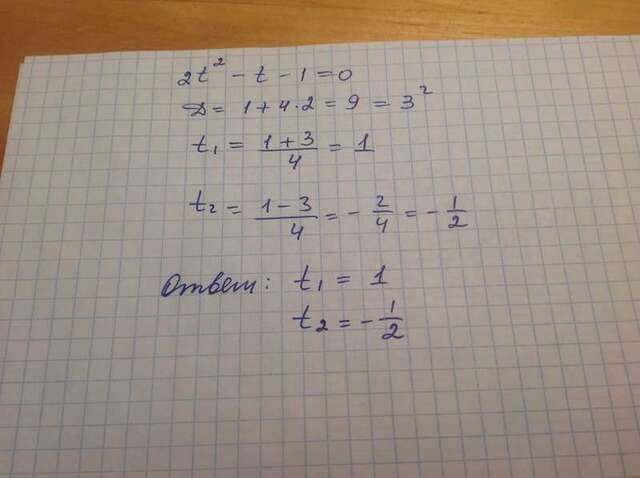 2t² - t - 1 = 0
D = 1 + 4·2 = 9 = 3²
t₁ = (1 + 3)/4 = 1
t₂ = (1 - 3)/4 = - 2/4 = - 1/2
Ответ: t₁ = 1
t₂ = - 1/2